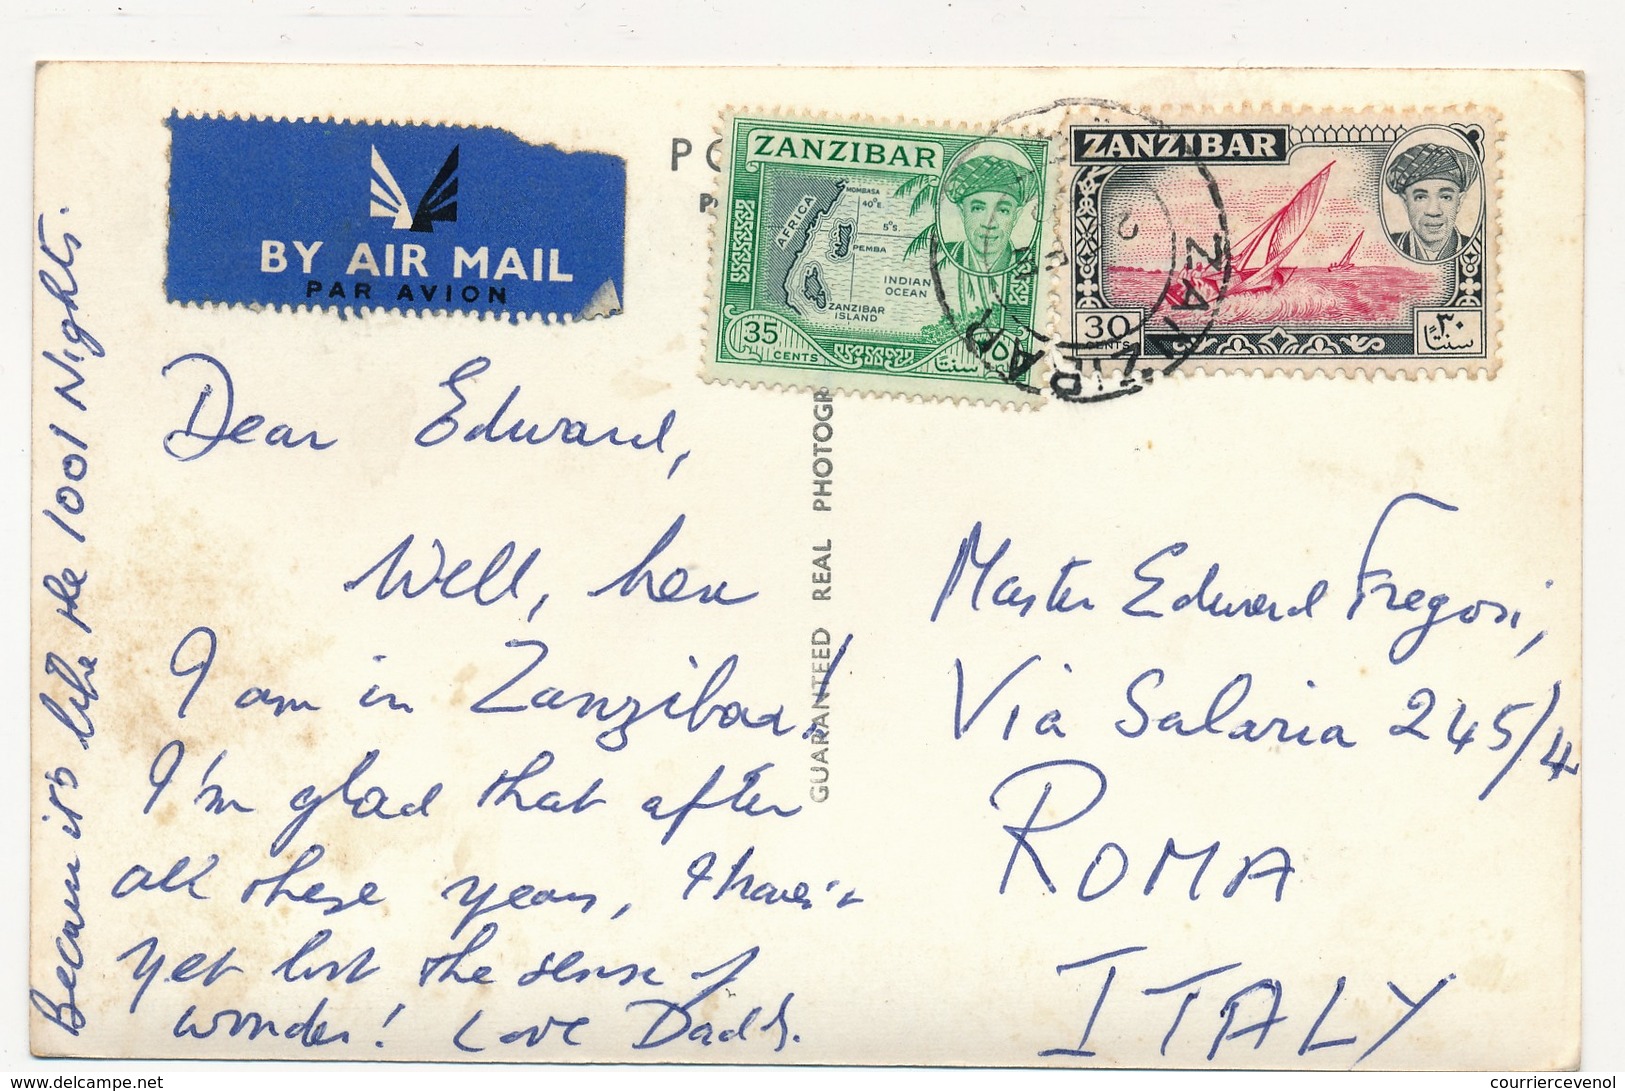 BY AIR MAIL
PAR AVION
PO
ZANZIBAR
AFRICA
MOMBASA
40°E.
5°S.
PEMBA
INDIAN
OCEAN
ZANZIBAR
ISLAND
35 CENTS
ZANZIBAR
30 CENTS
٣٠
سنتًا
ZANZIBAR
Dear Edward,
Well, here
I am in Zanzibar!
I'm glad that after
all these years, I haven't
yet lost the sense of
wonder! Love Daddy.
Because it's like the 1001 Nights.
GUARANTEED REAL PHOTOGR
Master Edward Fregosi,
Via Salaria 245/4
ROMA
ITALY
www.delcampe.net
courriercevenol